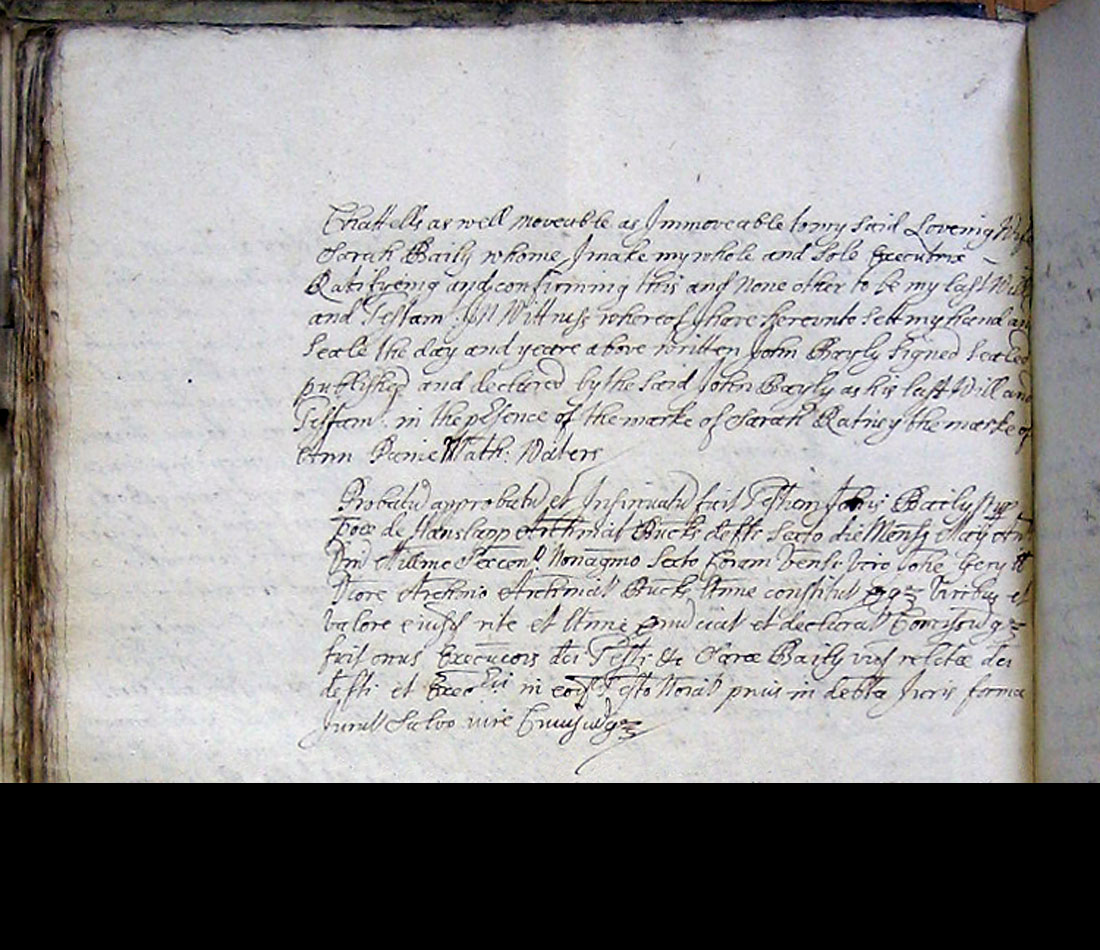 Chattells as well moveable as Immoveable to my said Loveing Wife
Sarah Baily whome I make my whole and sole Executrix
Ratifyeing and confirming this and None other to be my last Will
and Testam: In Wittness whereof I have hereunto sett my hand and
Seale the day and yeare above written John Bayly Signed Sealed
published and declared by the said John Bayly as his last Will and
Testam: in the psence of the marke of Sarah Ratney the marke of
Ann Math: Waters
Probatu approbatu et Insinuatu fuit Testam Baily nup
poce de Hanslapp Archinat Bucks defti Sexto die Mensis Maij Ann
Dni Millimo Sexcen Nonagmo Sexto Coram Venli viro Johe Gery
Archino Archinat Bucks ltime constitut viribus et
valore eiusd rite et ltime et declarat
fuit onus Execucois dci Testi &c Sarae Baily vid relictae dci
defti et in eod Testo noiat prius in debta Juris forma
Jurat Salvo iure